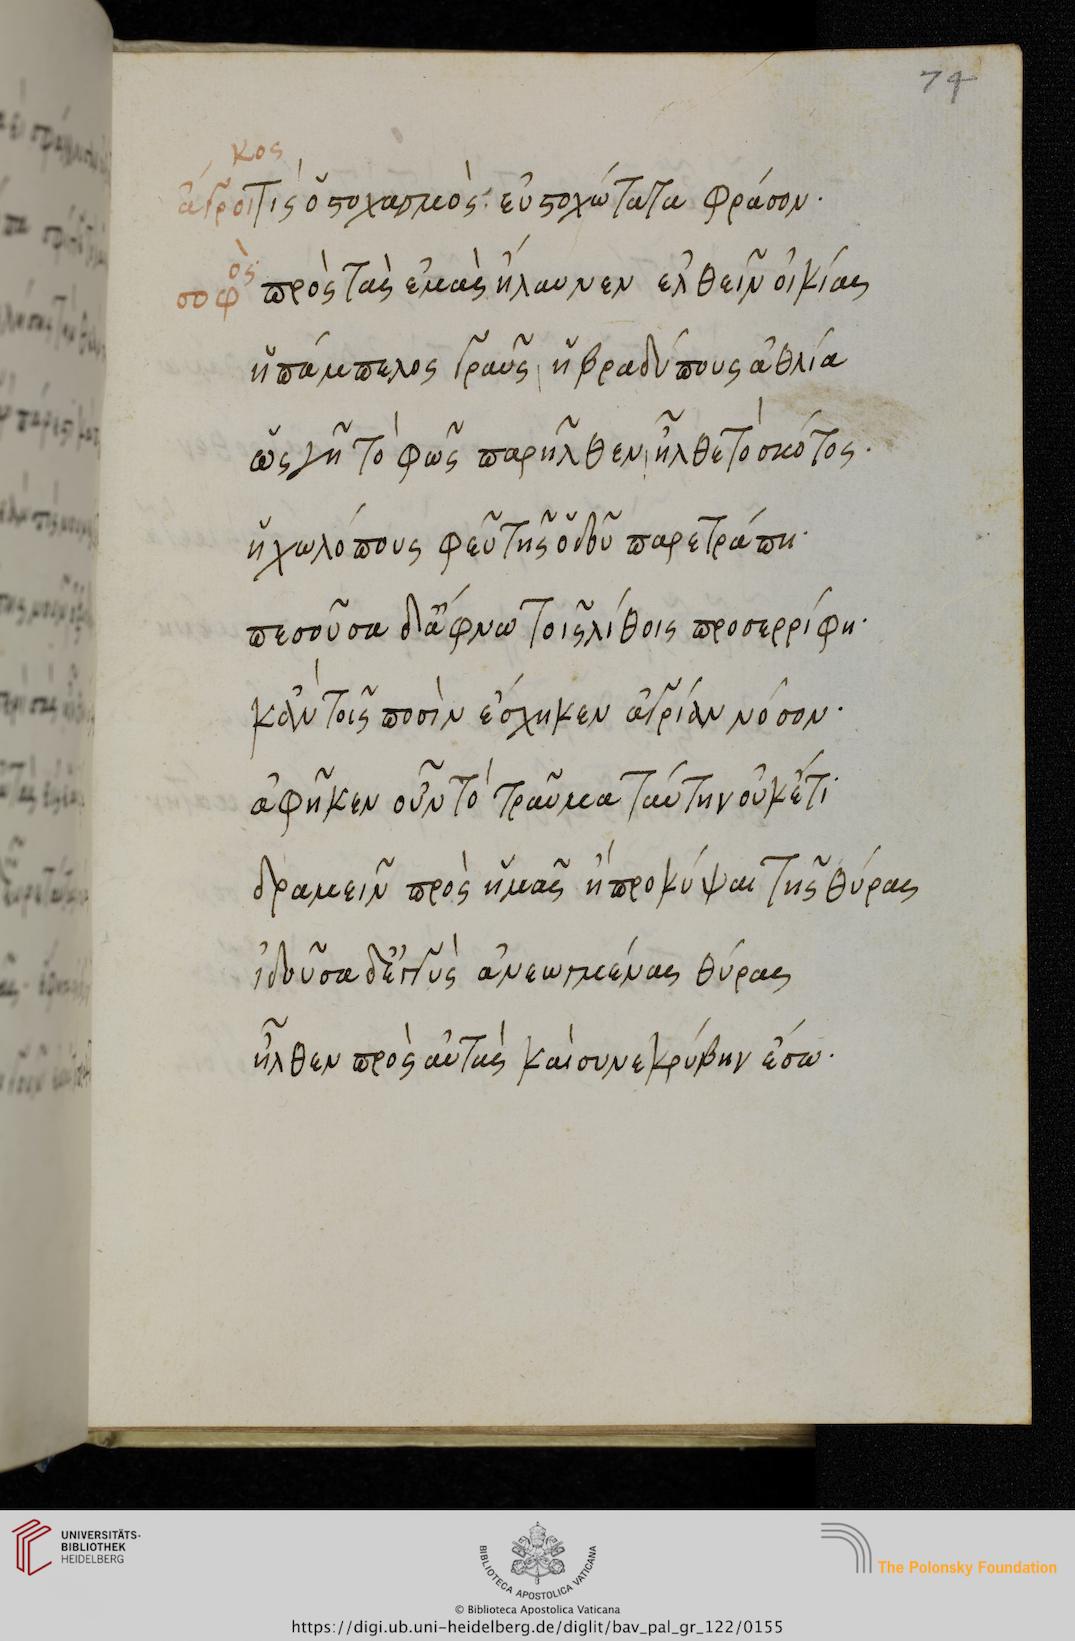 74
κος
ἄγροι τίς ὁ στοχασμὸς· εὐστοχώτατα φράσον·
ὸς
σοφ πρὸς τὰς ἐμὰς ἤλαυνεν ἐλθεῖν οἰκίας
ἡ πάμπελος γραῦς, ἡ βραδύπους ἀθλία
ὡς γῆ τὸ φῶς παρῆλθεν, ἦλθε τὸ σκότος·
ἡ χωλόπους φεῦ τῆς ὁδοῦ παρετράπη·
πεσοῦσα δ' ἄφνω τοῖς λίθοις προσερρίφη·
κἀν τοῖς ποσὶν ἔσχηκεν ἀγρίαν νόσον·
ἀφῆκεν οὖν τὸ τραῦμα ταύτην οὐκέτι·
δραμεῖν πρὸς ἡμᾶς ἢ προκύψαι τῆς θύρας
ἰδοῦσα δ' ἐγγὺς ἀνεωγμένας θύρας
ἦλθεν πρὸς αὐτὰς καὶ συνεκρύβην ἔσω·
UNIVERSITÄTS-
BIBLIOTHEK
HEIDELBERG
BIBLIOTECA APOSTOLICA VATICANA
The Polonsky Foundation
© Biblioteca Apostolica Vaticana
https://digi.ub.uni-heidelberg.de/diglit/bav_pal_gr_122/0155